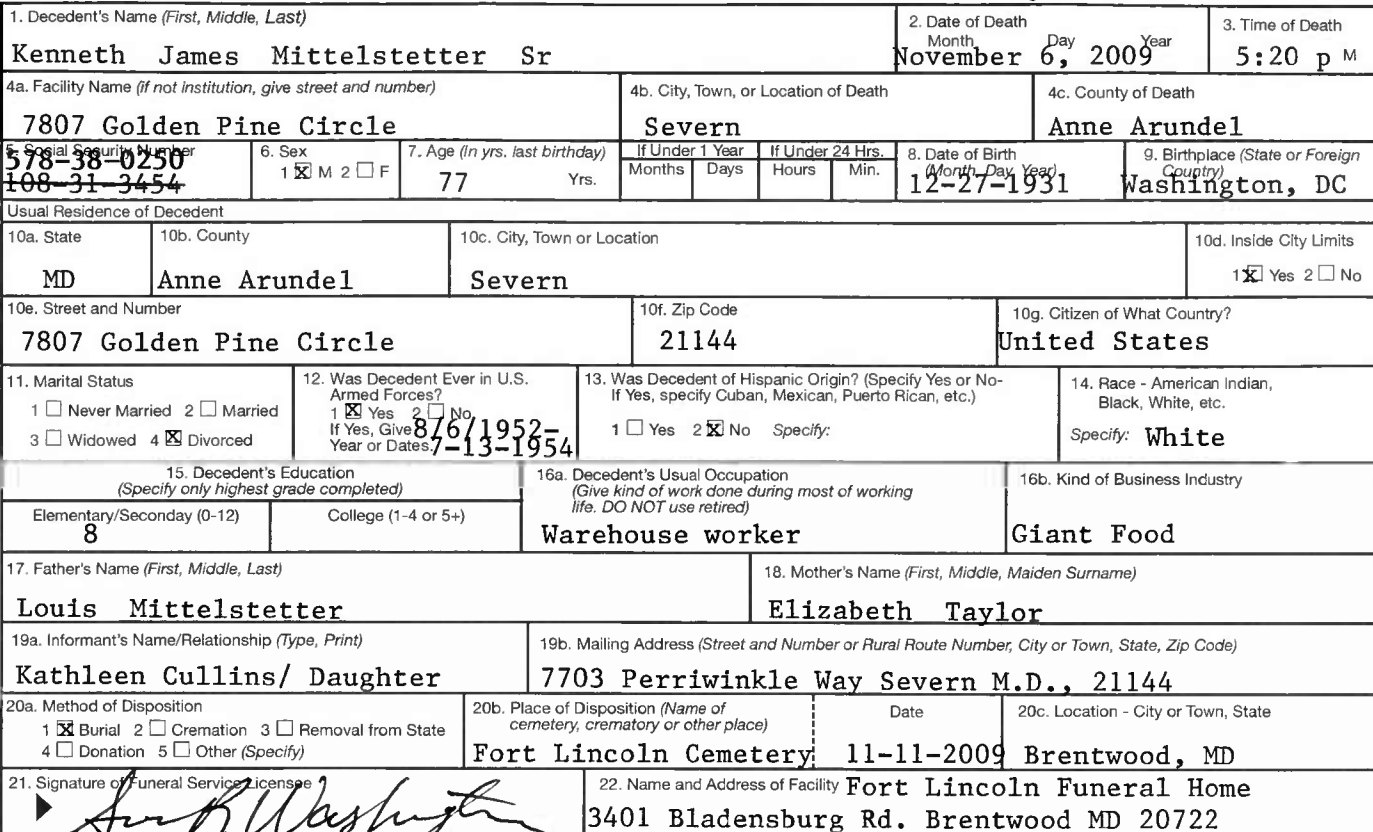 1. Decedent's Name (First, Middle, Last)
Kenneth James Mittelstetter Sr
2. Date of Death
Month Day Year
November 6, 2009
3. Time of Death
5:20 p M
4a. Facility Name (if not institution, give street and number)
7807 Golden Pine Circle
4b. City, Town, or Location of Death
Severn
4c. County of Death
Anne Arundel
5. Social Security Number
578-38-0250
108-31-3454
6. Sex
1 X M 2 ☐ F
7. Age (In yrs. last birthday)
77 Yrs.
If Under 1 Year
Months Days
If Under 24 Hrs.
Hours Min.
8. Date of Birth
(Month, Day, Year)
12-27-1931
9. Birthplace (State or Foreign
Country)
Washington, DC
Usual Residence of Decedent
10a. State
MD
10b. County
Anne Arundel
10c. City, Town or Location
Severn
10d. Inside City Limits
1 X Yes 2 ☐ No
10e. Street and Number
7807 Golden Pine Circle
10f. Zip Code
21144
10g. Citizen of What Country?
United States
11. Marital Status
1 ☐ Never Married 2 ☐ Married
3 ☐ Widowed 4 X Divorced
12. Was Decedent Ever in U.S.
Armed Forces?
1 X Yes 2 ☐ No
If Yes, Give 8/6/1952-
Year or Dates. 7-13-1954
13. Was Decedent of Hispanic Origin? (Specify Yes or No-
If Yes, specify Cuban, Mexican, Puerto Rican, etc.)
1 ☐ Yes 2 X No Specify:
14. Race - American Indian,
Black, White, etc.
Specify: White
15. Decedent's Education
(Specify only highest grade completed)
Elementary/Seconday (0-12)
8
College (1-4 or 5+)
16a. Decedent's Usual Occupation
(Give kind of work done during most of working
life. DO NOT use retired)
Warehouse worker
16b. Kind of Business Industry
Giant Food
17. Father's Name (First, Middle, Last)
Louis Mittelstetter
18. Mother's Name (First, Middle, Maiden Surname)
Elizabeth Taylor
19a. Informant's Name/Relationship (Type, Print)
Kathleen Cullins/ Daughter
19b. Mailing Address (Street and Number or Rural Route Number, City or Town, State, Zip Code)
7703 Perriwinkle Way Severn M.D., 21144
20a. Method of Disposition
1 X Burial 2 ☐ Cremation 3 ☐ Removal from State
4 ☐ Donation 5 ☐ Other (Specify)
20b. Place of Disposition (Name of
cemetery, crematory or other place)
Fort Lincoln Cemetery
Date
11-11-2009
20c. Location - City or Town, State
Brentwood, MD
21. Signature of Funeral Service Licensee
Washington
22. Name and Address of Facility Fort Lincoln Funeral Home
3401 Bladensburg Rd. Brentwood MD 20722